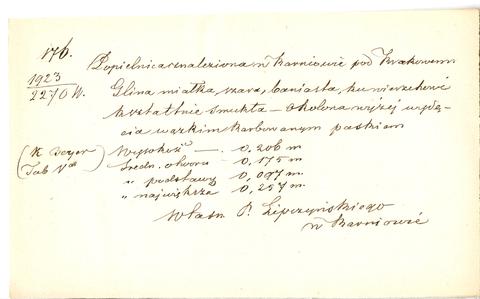 176.
1923
2270 W.
Popielnica znaleziona w Karniowie pod Krakowem
Glina miałka, szara, baniasta, ku wierzchowi
kształtnie smukła – okolona wyżej wydę-
cia wązkim karbowanym paskiem
(K Beyer
Tab V
Wysokość — . 0,206 m
Średn. otworu — 0,175 m
„ podstawy 0,097 m.
„ największa 0,257 m.
Własn P. Lipczyńskiego
w Karniowie